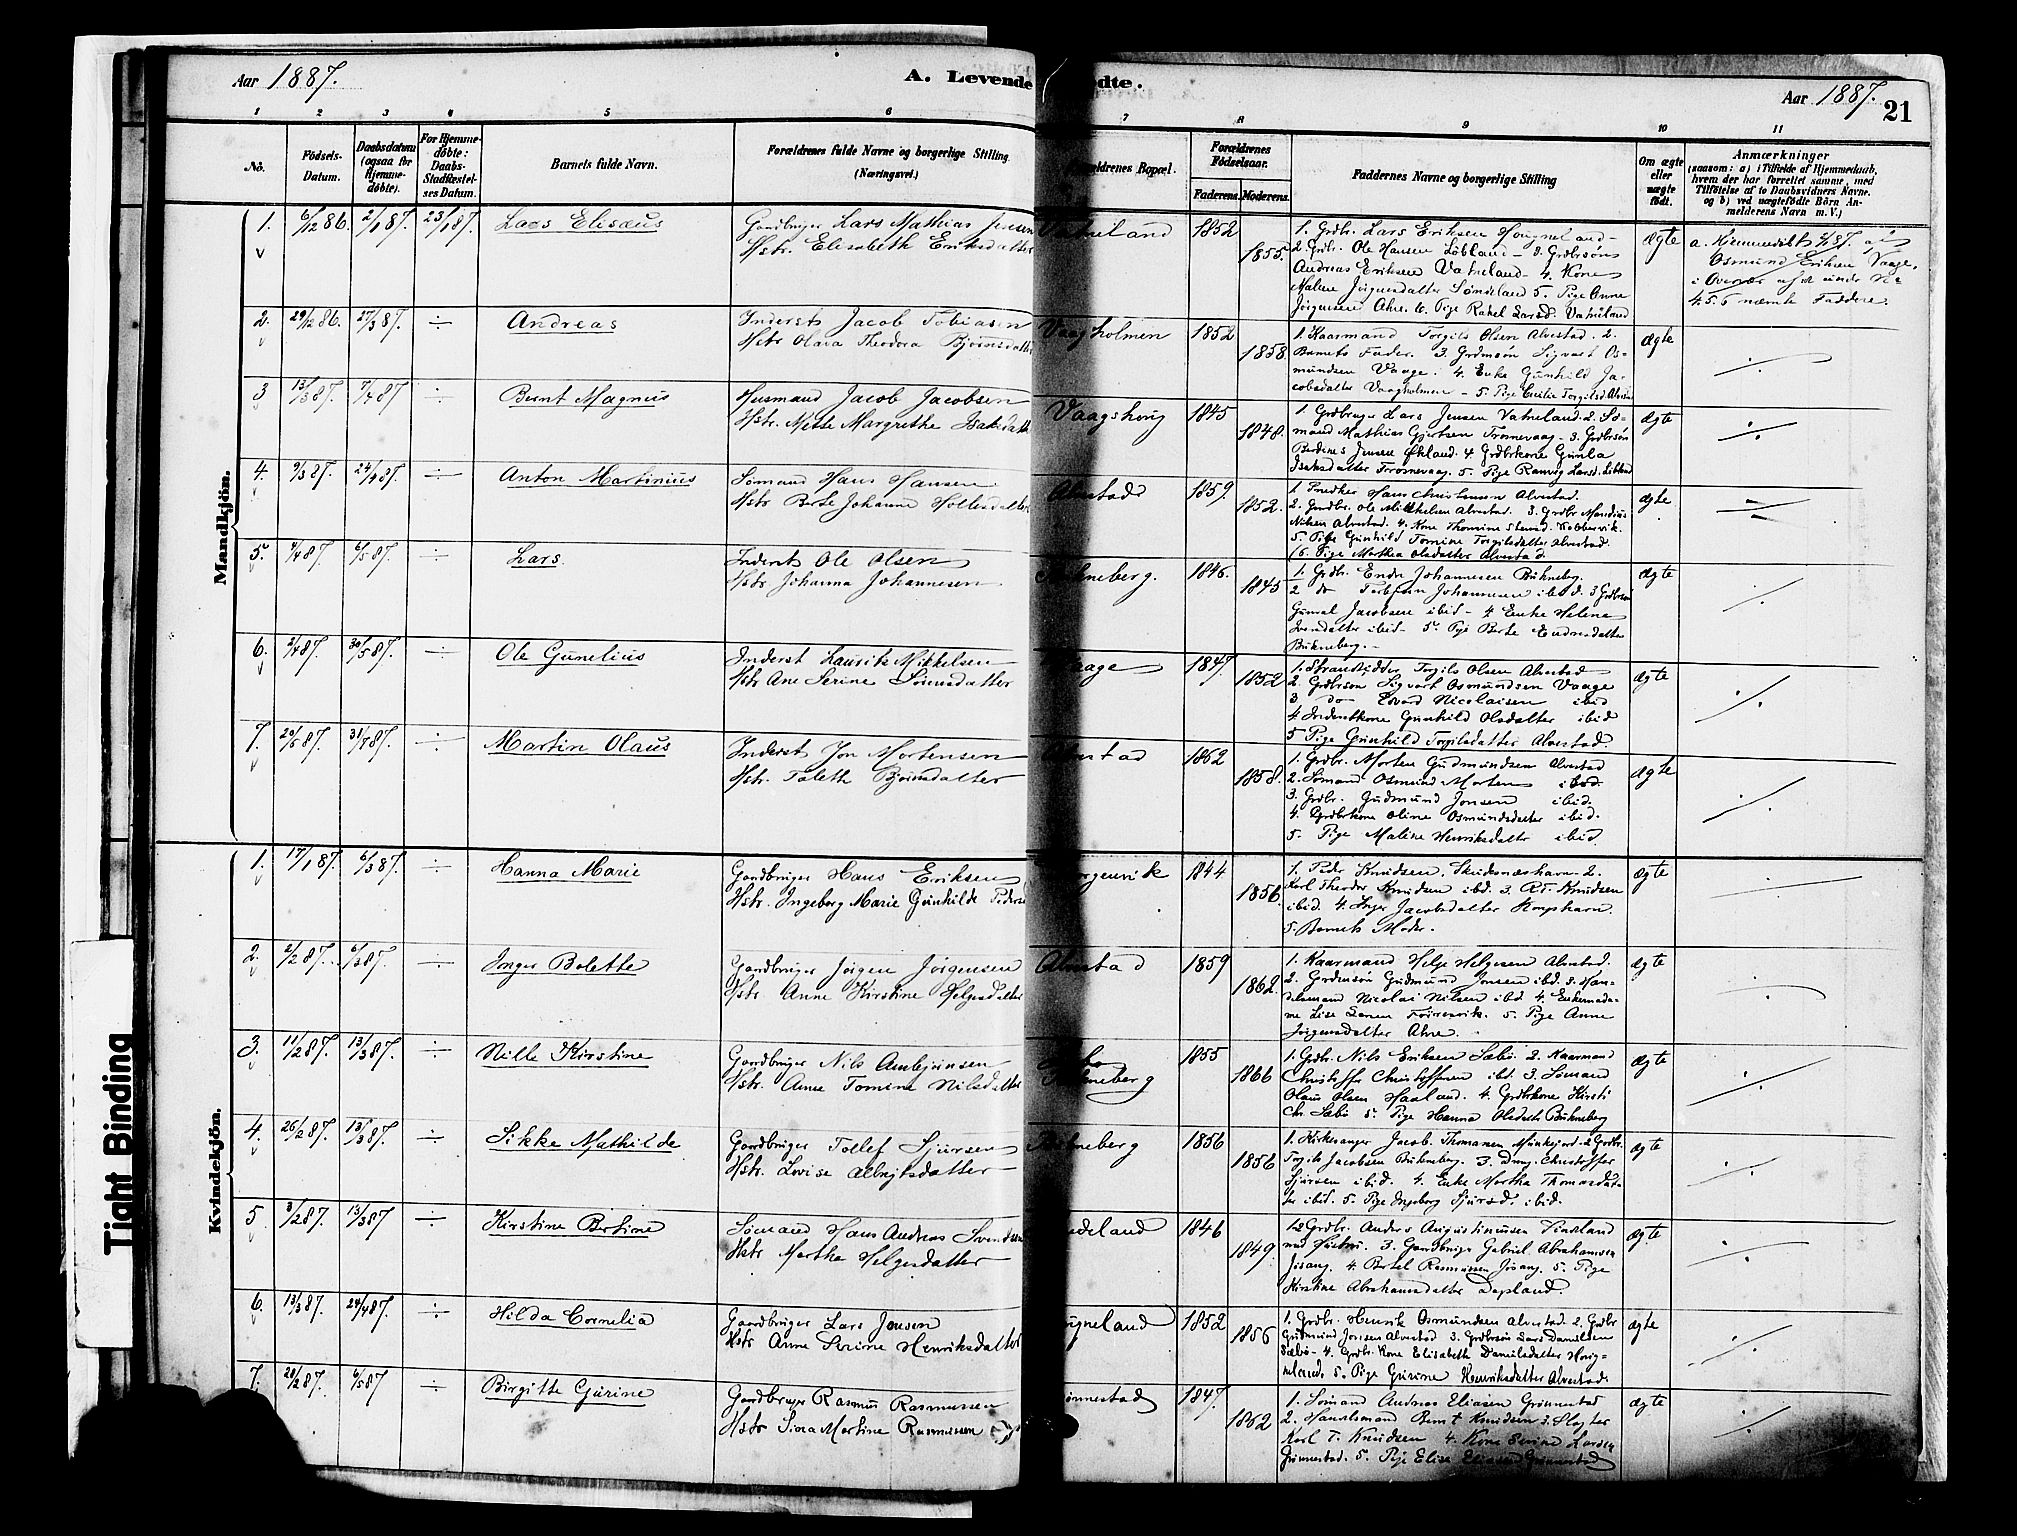 Aar 1887.
A. Levende
ødte.
Aar 1887.
21
1 2 3 4 5 6 7 8 9 10 11
No.
Fødsels-Datum.
Daabsdatum (ogsaa for Hjemmedøbte).
For Hjemmedøbte: Daabs-Stadfæstelses Datum.
Barnets fulde Navn.
Forældrenes fulde Navne og borgerlige Stilling. (Næringsvei.)
ældrenes Bopæl.
Forældrenes Fødselsaar.
Faderens. Moderens.
Faddernes Navne og borgerlige Stilling
Om ægte eller uægte født.
Anmærkninger
(saasom: a) i Tilfælde af Hjemmedaab, hvem der har forrettet samme, med Tilføielse af to Daabsvidners Navne. og b) ved uægtefødte Börn Anmelderens Navn m. V.)
Mandkjön.
1. 6/12 86. 2/1 87. 23/1 87. Lars Elisæus
Gaardbruger Lars Mathias Jensen
Hstr. Elisabeth Eriksdatter
Vatneland 1852 1855.
1. Grdbr. Lars Eriksen Hougneland
2. Grdbr. Ole Hansen Løbland - 3. Grdbrsøn
Andreas Eriksen Vatneland - 4. Kone
Malene Jørgensdatter Sønneland 5. Pige Anne
Jørgensen Ahre. 6. Pige Rakel Larsd. Vatneland
Ægte
a. Hjemmedøbt 2/1 87. af
Osmund Eriksen Vaage,
i Overvær af de under No
4. 5. 6 nævnte Faddere.
2. 29/12 86. 27/3 87. ÷ Andreas
Inderst Jacob Tobiasen
Hstr. Olava Theodora Bjørnsdatter
Vaagholmen 1852 1858.
1. Kaarmand Torgils Olsen Alvestad. 2.
Barnets Fader. 3. Grdmsøn Sigvart Os-
mundsen Vaage. 4. Enke Gunhild Ja-
cobsdatter Vaagholmen - 5. Pige Emilie Torgilsd. Alvestad
Ægte
3 13/3 87. 7/4 87 ÷ Bernt Magnus
Husmand Jacob Jacobsen
Hstr. Mette Margrethe Isaksdatter
Vaagshoug 1845 1848.
1. Grdbruger Lars Jensen Vatneland. 2. Sø-
mand Mathias Gjertsen Trosnevaag - 3. Grdbrsøn
Berdines Jensen Økland. 4. Grdbrkone Gunla
Isaksdatter Trosnevaag. 5. Pige Ranveig Larsd. Løbland
ægte
4. 9/3 87. 24/4 87. ÷ Anton Martinius
Sømand Hans Hansen
Hstr Berte Johanne Hollesdatter
Alvestad 1859. 1852.
1 Prædker Hans Christensen Alvestad.
2. Gardbr. Ole Mikkelsen Alvestad. 3. Grdbr Mandius
Nilsen Alvestad. 4. Kone Thomine Stensd. Kobbervik.
5. Pige Gunhild Tomine Torgilsdatter Alvestad.
6. Pige Marthea Olsdatter Alvestad.
ægte
5. 4/4 87. 6/5 87. ÷ Lars.
Inderst Ole Olsen
Hstr Johanna Johannesen
neberg. 1846. 1845
1. Grdbr. Endre Johannesen Bukneberg.
2 do Torbjørn Johannesen ibid. 3 Grdbrsøn
Gunval Jacobsen ibid - 4 Enke Helena
Ivensdatter ibid - 5. Pige Berte Endresdatter
Bukneberg. -
Ægte
6. 2/4 87. 30/5 87. ÷ Ole Gunelius
Inderst Laurits Mikkelsen
Hstr Ane Serine Simensdatter
Vaage 1847. 1852
1. Strandsidder Torgils Olsen Alvestad
2. Grdbrsøn Sigvart Osmundsen Vaage
3 do Edvard Nicolaisen ibid
4. Inderstkone Gunhild Olsdatter ibid
5 Pige Gunhild Torgilsdatter Alvestad.
ægte
7. 20/5 87. 31/7 87. ÷ Martin Olaus
Inderst Jon Mortensen
Hstr. Taleth Bjørnsdatter
Alvestad 1862 1858.
1. Grdbr. Morten Gudmundsen Alvestad
2. Sømand Osmund Morten ibid.
3. Grdbr. Gudmund Jonsen ibid.
4. Grdbrkone Oline Osmundsdatter ibid.
5. Pige Malene Henriksdatter ibid.
ægte
Kvindekjön.
1. 17/1 87. 6/3 87. ÷ Hanna Marie
Gaardbruger Hans Eriksen
Hstr. Ingeborg Marie Gunhilde Peders
1844 1856.
1. Peder Knudsen, Skudesnæshavn - 2.
Karl Theodor Knudsen ibd. 3. R. T. Knudsen
ibid. 4. Inger Jacobsdatter Kopshavn.
5. Barnets Moder.
Ægte
2. 2/2 87. 6/3 87. ÷ Inger Bolette
Gaardbruger Jørgen Jørgensen
Hstr. Anne Kirstine Helgesdatter
Alvestad 1859 1862.
1. Kaarmand Helge Helgesen Alvestad.
2. Gardmsøn Gudmund Jonsen ibd. 3. Han-
delsmand Nicolai Nilsen ibd 4. Enkemada-
me Lise 5. Pige Anne
Jørgensdatter Ahre.
ægte
3. 11/2 87. 13/3 87. ÷ Nille Kirstine
Gaardbruger Nils Anbjørnsen
Hstr. Anne Tomine Nilsdatter
neberg 1855 1866
1. Grdbr. Nils Eriksen Sæbø. 2. Kaarmand
Christoffer Christoffersen ibd. 3. Sømand
Olaus Olsen Haaland. 4. Grdbrkone Kirsti
Chr. Sæbø 5. Pige Hanna Olsdatr Bukneberg
ægte
4. 26/2 87. 13/3 87. ÷ Sikke Mathilde
Gaardbruger Tollef Sjursen
Hstr. Lovise Albrigtsdatter
neberg 1856 1856
1. Kirkesanger Jacob Thomasen Munkejord. 2 Grdbr.
Torgils Jacobsen Bukneberg. 3. Dreng Christoffer
Sjursen ibid. 4. Enke Martha Thomasdat-
ter ibid. 5. Pige Ingeborg Sjursd. ibid.
ægte
5 3/2 87. 13/3 87 ÷ Kirstine Bertine
Sømand Hans Andreas Svendsen
Hstr Martha Helgesdatter
deland 1846 1849.
Grdbr. Anders Augustinussen
med Hustru. 3. Gaardbruge Gabriel Abrahamsen
Jisang. 4. Bertel Rasmussen Jisang. 5. Pige
Kirstine Abrahamsdatter Dapland.
ægte
6. 13/3 87. 24/4 87. ÷ Hilda Cornelia
Gaardbruger Lars Jensen
Hstr Anne Serine Henriksdatter
ugneland 1852 1856
1. Grdbr. Henrik Osmundsen Alvestad. 2. Grdbr
Gudmund Jonsen Alvestad 3. Grdbrsøn Lars Danielsen
Sæbø - 4. Grdbr. Kone Elisabeth Danielsdatter Houg-
neland. 5. Pige Gurine Henriksdatter Alvestad.
ægte
7. 28/2 87. 6/5 87 ÷ Birgitte Gurine
Gaardbruger Rasmus Rasmussen
Hstr Sina Martine Rasmussen
ønnestad 1847. 1862
1. Sømand Andreas Eliasen Grønnestad
2. Handelsmand Bernt Knudsen 3. Slagter
Karl T. Knudsen 4. Kone Serine Larsen
Grønnestad. 5. Pige Elise Eliasen Grønnestad
ægte
Tight Binding